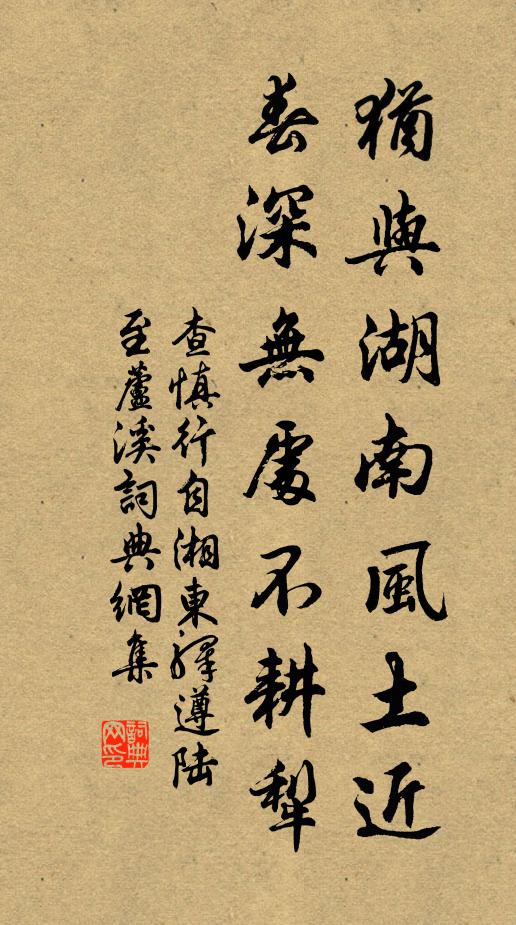 猶與湖南風土近
春深無處不耕犁
查慎行自湘東驛遵陸
至蘆溪詞典網集
詞典
网印